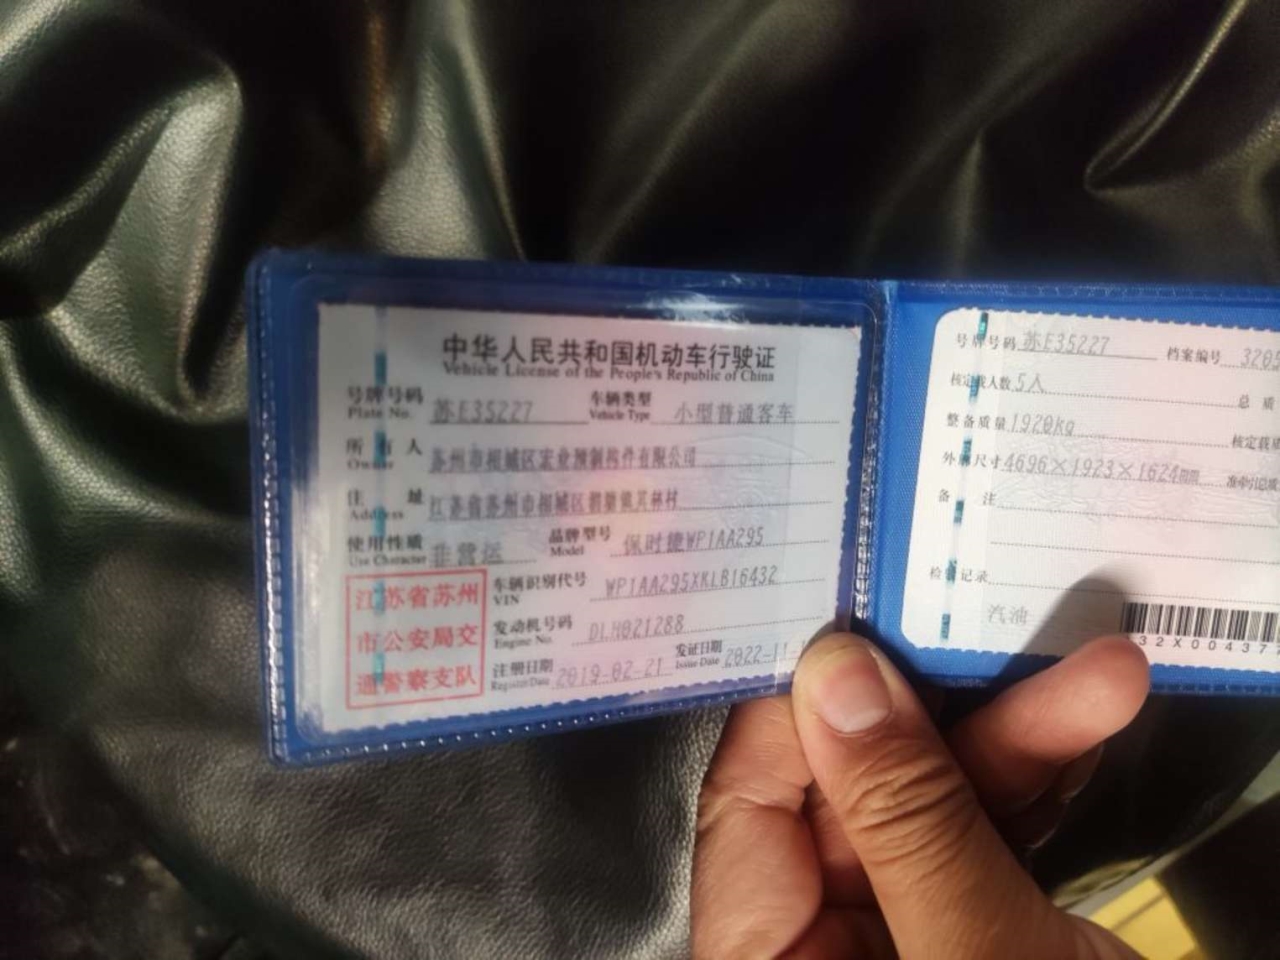 中华人民共和国机动车行驶证
Vehicle License of the People's Republic of China
号牌号码 苏E35227 车辆类型 小型普通客车
Plate No. Vehicle Type
所有人 苏州市相城区宏业预制构件有限公司
Owner
住址 江苏省苏州市相城区
Address
使用性质 非营运 品牌型号 保时捷WP1AA295
Use Character Model
江苏省苏州
市公安局交
通警察支队
车辆识别代号 WP1AA295XKLB16432
VIN
发动机号码 DLH021288
Engine No.
注册日期 2019-02-21 发证日期 2022-11-
Register Date Issue Date
号牌号码 苏E35227 档案编号 3205
核定载人数 5人 总质
整备质量 1920kg 核定载质
外廓尺寸 4696×1923×1624mm
备注
检验记录
汽油
32X00437